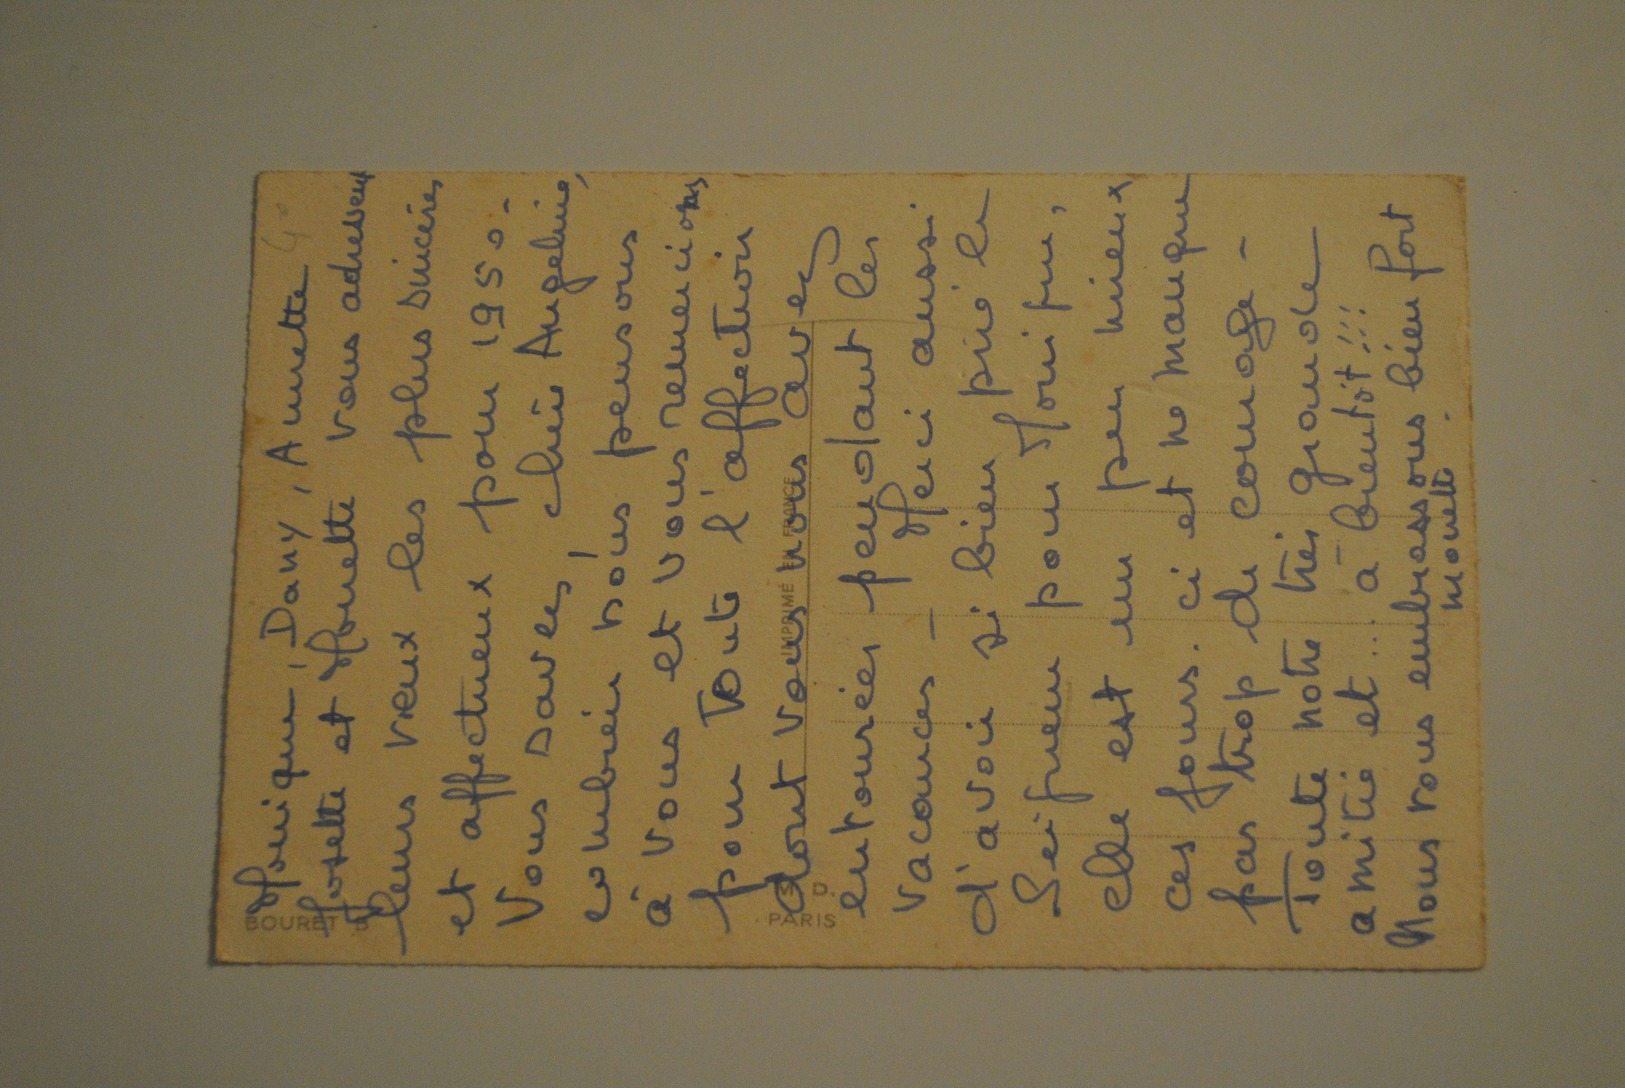 Monique, Dany, Annette
Josette et Monette vous adressent
leurs vœux les plus sincères
et affectueux pour 1950 -
Vous savez, chère Angeline,
combien nous pensons
à vous et vous remercions
pour Toute l'affection
dont vous nous avez
entourées pendant les
vacances - Merci aussi
d'avoir si bien prié le
Seigneur pour
elle est un peu mieux
ces jours-ci et ne manque
pas trop de courage -
Toute notre très grande
amitié et... à bientôt!!!
Nous vous embrassons bien fort
Monette -
BOURET B
IMPRIMÉ EN FRANCE
D.
PARIS